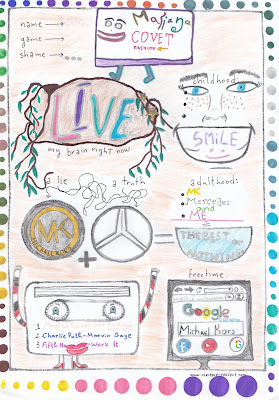 name
game
shame
Mafiana
COVET
FASHION
childhood:
LIVE
my brain right now
SMILE
a lie
a truth
adulthood:
MK
Mercedes
and
ME
MK
MICHAEL KORS
THE BEST
freetime:
Google
Michael Kors
1
2 Charlie Puth-Marvin Gaye
3 Fifth Harmony-Work It